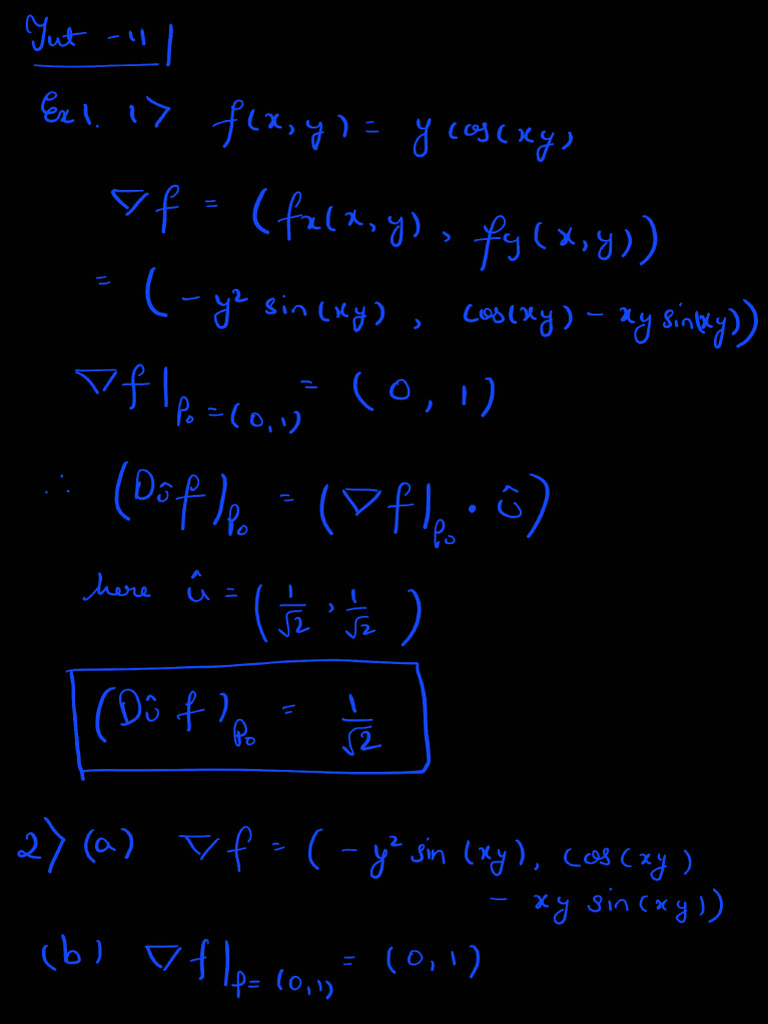 Tut - 11
Ex 1. 1> f(x, y) = y cos(xy)
∇f = (fx(x, y), fy(x, y))
= (- y² sin(xy), cos(xy) - xy sin(xy))
∇f|P₀ = (0, 1) = (0, 1)
∴ (Dûf)P₀ = (∇f|P₀ · û)
here û = (1/√2, 1/√2)
(Dûf)P₀ = 1/√2
2> (a) ∇f = (- y² sin(xy), cos(xy)
- xy sin(xy))
(b) ∇f|P = (0, 1) = (0, 1)